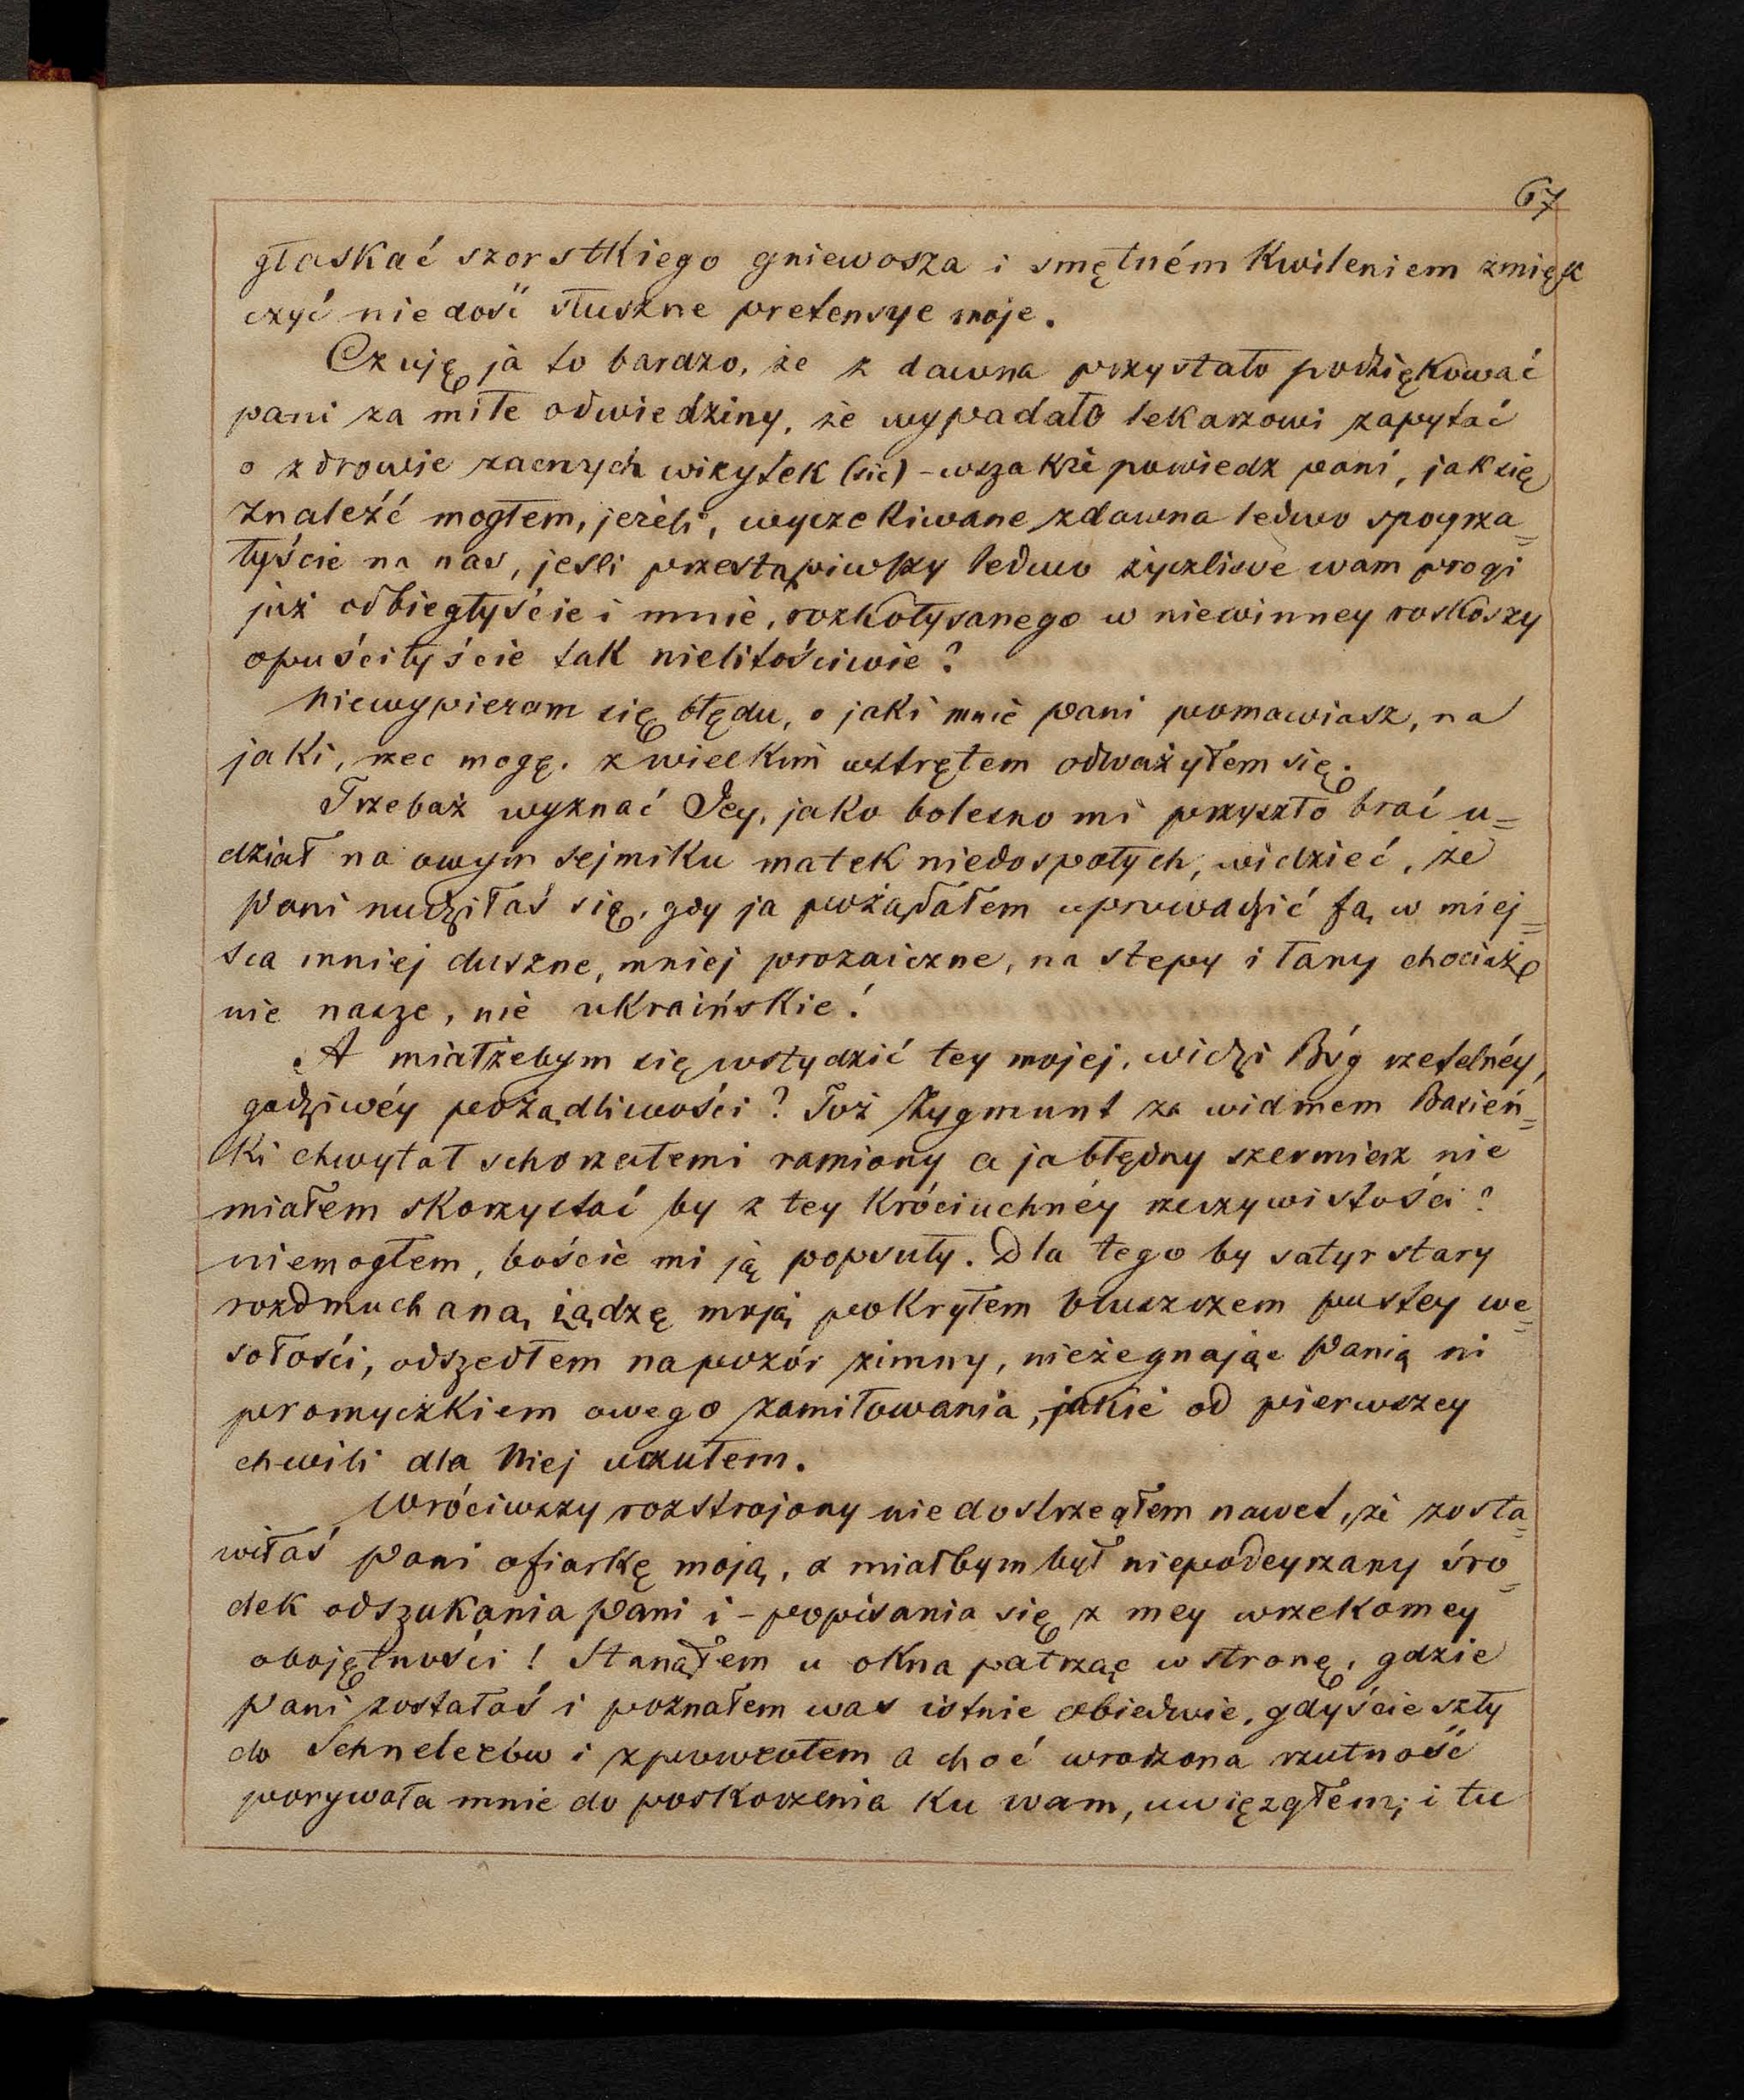 67
głaskać szorstkiego gniewosza i smętném kwileniem zmięk
czyć nie dość słuszne pretensye moje.
Czuję ja to bardzo, że z dawna przystało podziękować
pani za miłe odwiedziny, że wypadało lekarzowi zapytać
o zdrowie zacnych wizytek (sic) – wszakże powiedz pani, jak się
znaleźć mogłem, jeżeli, wyczekiwane zdawna ledwo spoyrza=
łyście na nas, jesli przestąpiwszy ledwo życzliwe wam progi
już odbiegłyście i mnie, rozkołysanego w niewinney roskoszy
opuściłyście tak nielitościwie?
Niewypieram się błędu, o jaki mnie pani pomawiasz, na
jaki, rzec mogę, z wielkim wstrętem odważyłem się.
Trzebaż wyznać Jey, jako bolesno mi przyszło brać u=
dział na owym sejmiku matek niedospałych, widzieć, że
Pani nudziłaś się, gdy ja pożądałem uprowadzić Ją, w miej=
sca mniej duszne, mniej prozaiczne, na stepy i łany chociaż
nie nasze, nie ukraińskie!
A miałżebym się wstydzić tey mojej, widzi Bóg rzetelnéy,
godziwéy pożądliwości? Toż Zygmunt za widmem Basień=
ki chwytał schorzałemi ramiony a ja błędny szermierz nie
miałem skorzystać by z tey króciuchnéy rzeczywistości?
niemogłem, boście mi ją popsuły. Dla tego by satyr stary
rozdmuchaną żądzę moją pokryłem bluszczem pustey we=
sołości, odszedłem napozór zimny, nieżegnając Panią ni
promyczkiem owego zamiłowania, jakie od pierwszey
chwili dla Niej uczułem.
Wróciwszy rozstrojony nie dostrzegłem nawet, że zosta=
wiłaś Pani ofiarkę moją, a miałbym był niepodeyrzany śro=
dek odszukania Pani i – popisania się z mey wrzekomey
obojętności! Stanąłem u okna patrząc w stronę, gdzie
Pani zostałaś i poznałem was istnie obiedwie, gdyście szły
do Schnelerów i zpowrotem a choć wrodzona rzutność
porywała mnie do poskoczenia ku wam, uwięzgłem; i tu